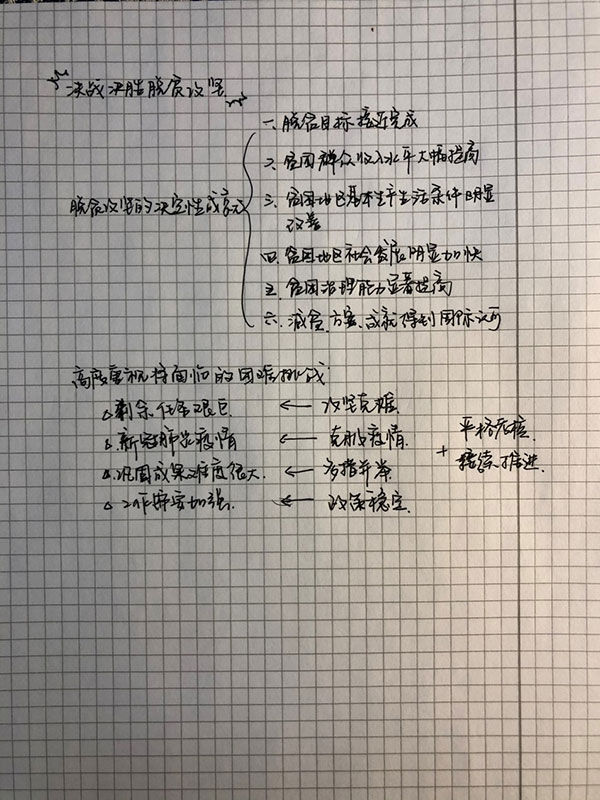 决战决胜脱贫攻坚
一、脱贫目标接近完成
二、贫困群众收入水平大幅提高
脱贫攻坚的决定性成就
三、贫困地区基本生产生活条件明显
改善
四、贫困地区社会发展明显加快
五、贫困治理能力显著提高
六、减贫方案、成就得到国际认可
高度重视将面临的困难挑战
剩余任务艰巨 ← 攻坚克难
新冠肺炎疫情 ← 克服疫情
巩固成果难度很大 ← 多措并举
工作需要加强 ← 政策稳定
+ 严格考核
接续推进